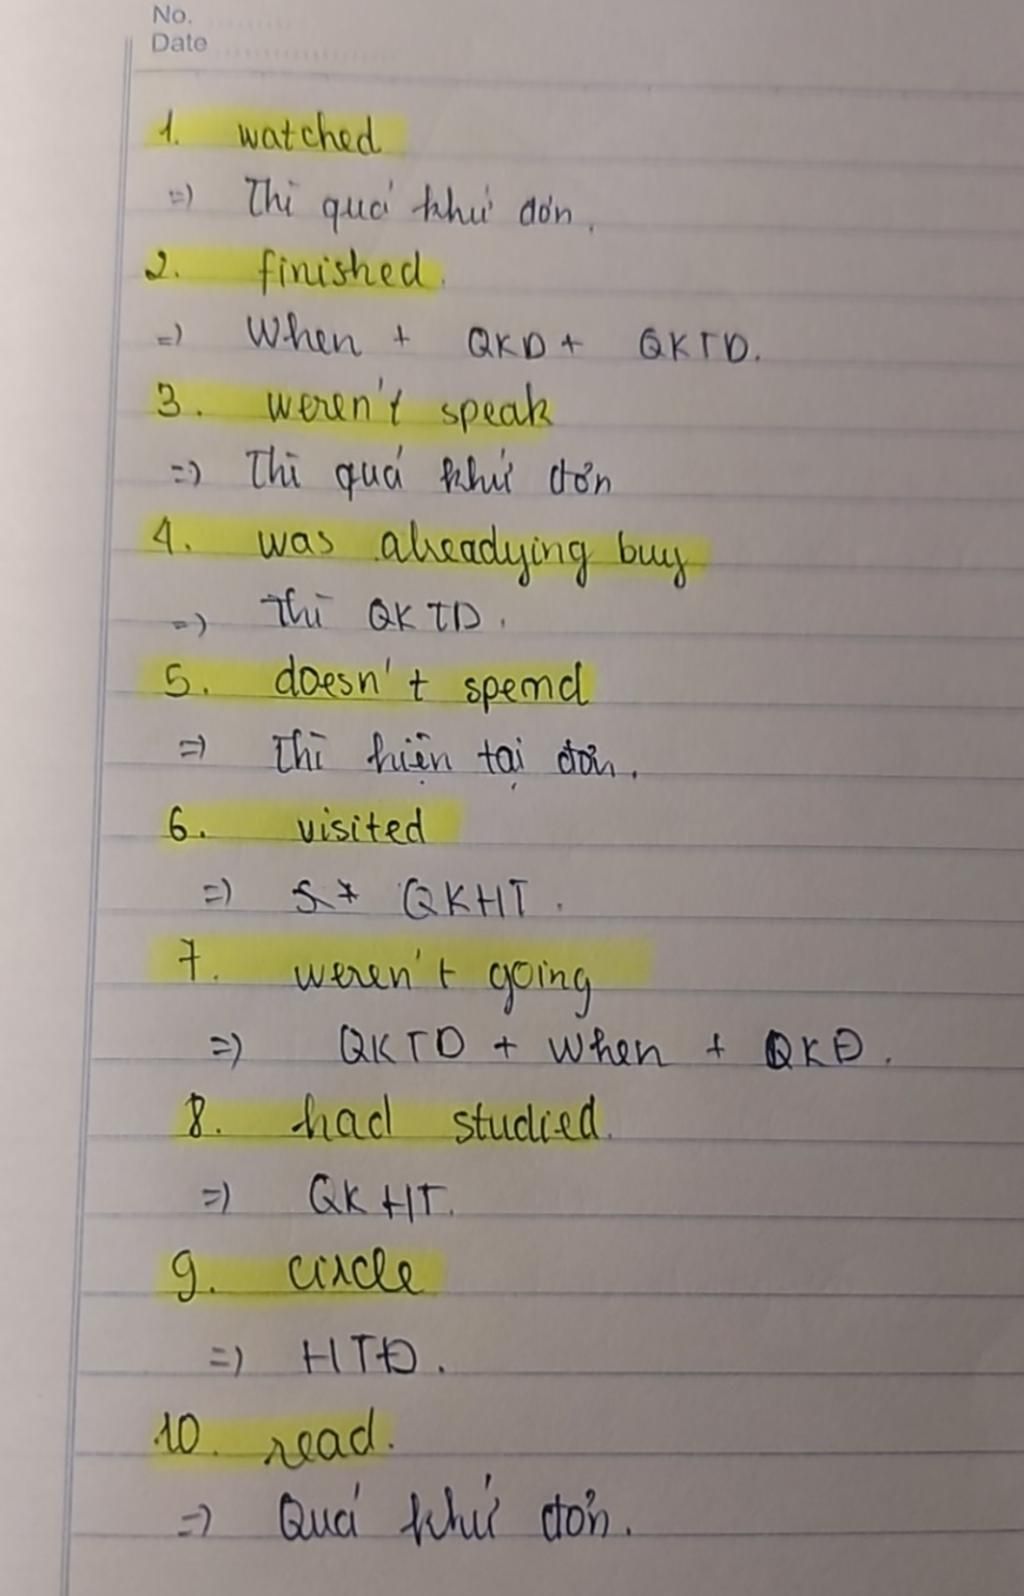 No.
Date
1. watched
=) Thì quá khứ đơn.
2. finished.
=) When + QKD + QKTD.
3. weren't speak
=) Thì quá khứ đơn
4. was alreadying buy
=) Thì QKTD.
5. doesn't spend
=) Thì hiện tại đơn.
6. visited
=) QKHT.
7. weren't going
=) QKTD + when + QKĐ.
8. had studied.
=) QKHT.
9. circle
=) HTĐ.
10. read.
=) Quá khứ đơn.